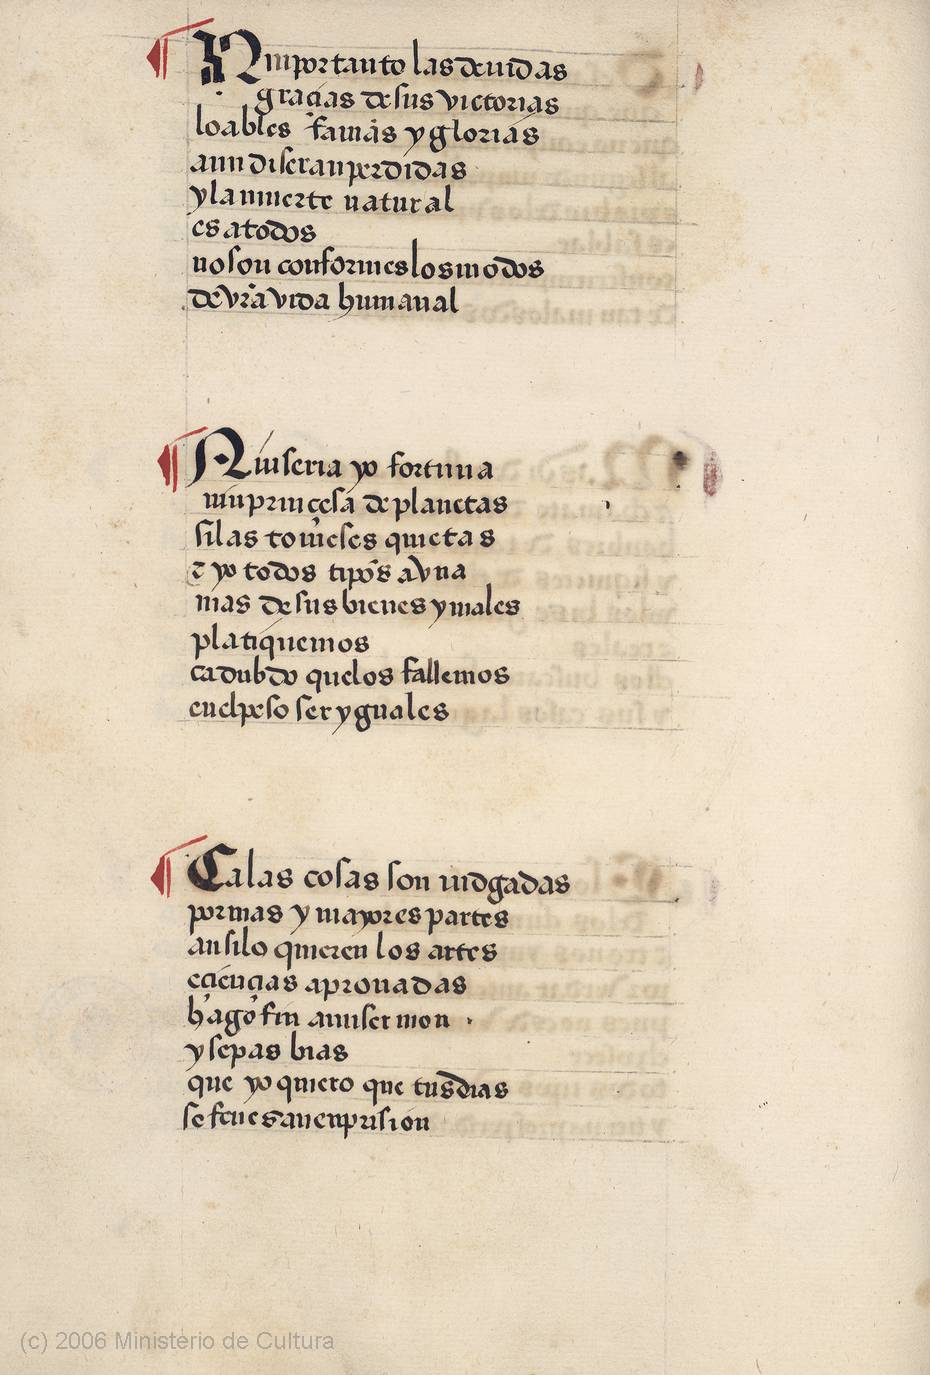 Nin por tanto las deuidas
graçias de sus victorias
loables famas y glorias
ann diseran perdidas
y la muerte natural
es a todos
no son conformes los modos
de vr̃a vida humanal
Aui seria yo fortuna
nin prinçesa de planetas
si las touiese quietas
τ yo todos tipõs a vna
mas de sus bienes y males
platiquemos
cadubdo que los fallemos
en el peso ser yguales
Ca las cosas son iudgadas
por mas y mayores partes
an si lo quieren los artes
e çiençias aprouadas
hago fin a mi sermon
y sepas bias
que yo quiero que tus dias
se fenescan en prision
(c) 2006 Ministerio de Cultura